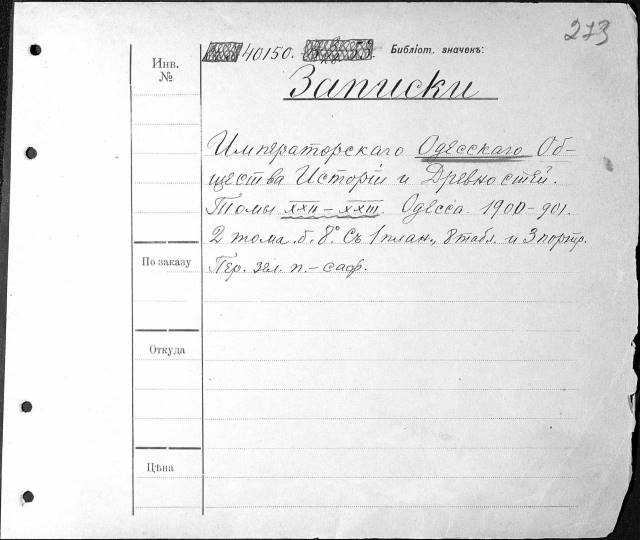 273
Инв. №
40150.
Библіот. значекъ:
Записки
Императорскаго Одесскаго Об-
щества Исторіи и Древностей.
Томы XXII–XXIII. Одесса. 1900–901.
2 тома. б. 8° Съ 1 план., 8 табл. и 3 портр.
По заказу
Пер. зел. п.–саф.
Откуда
Цѣна